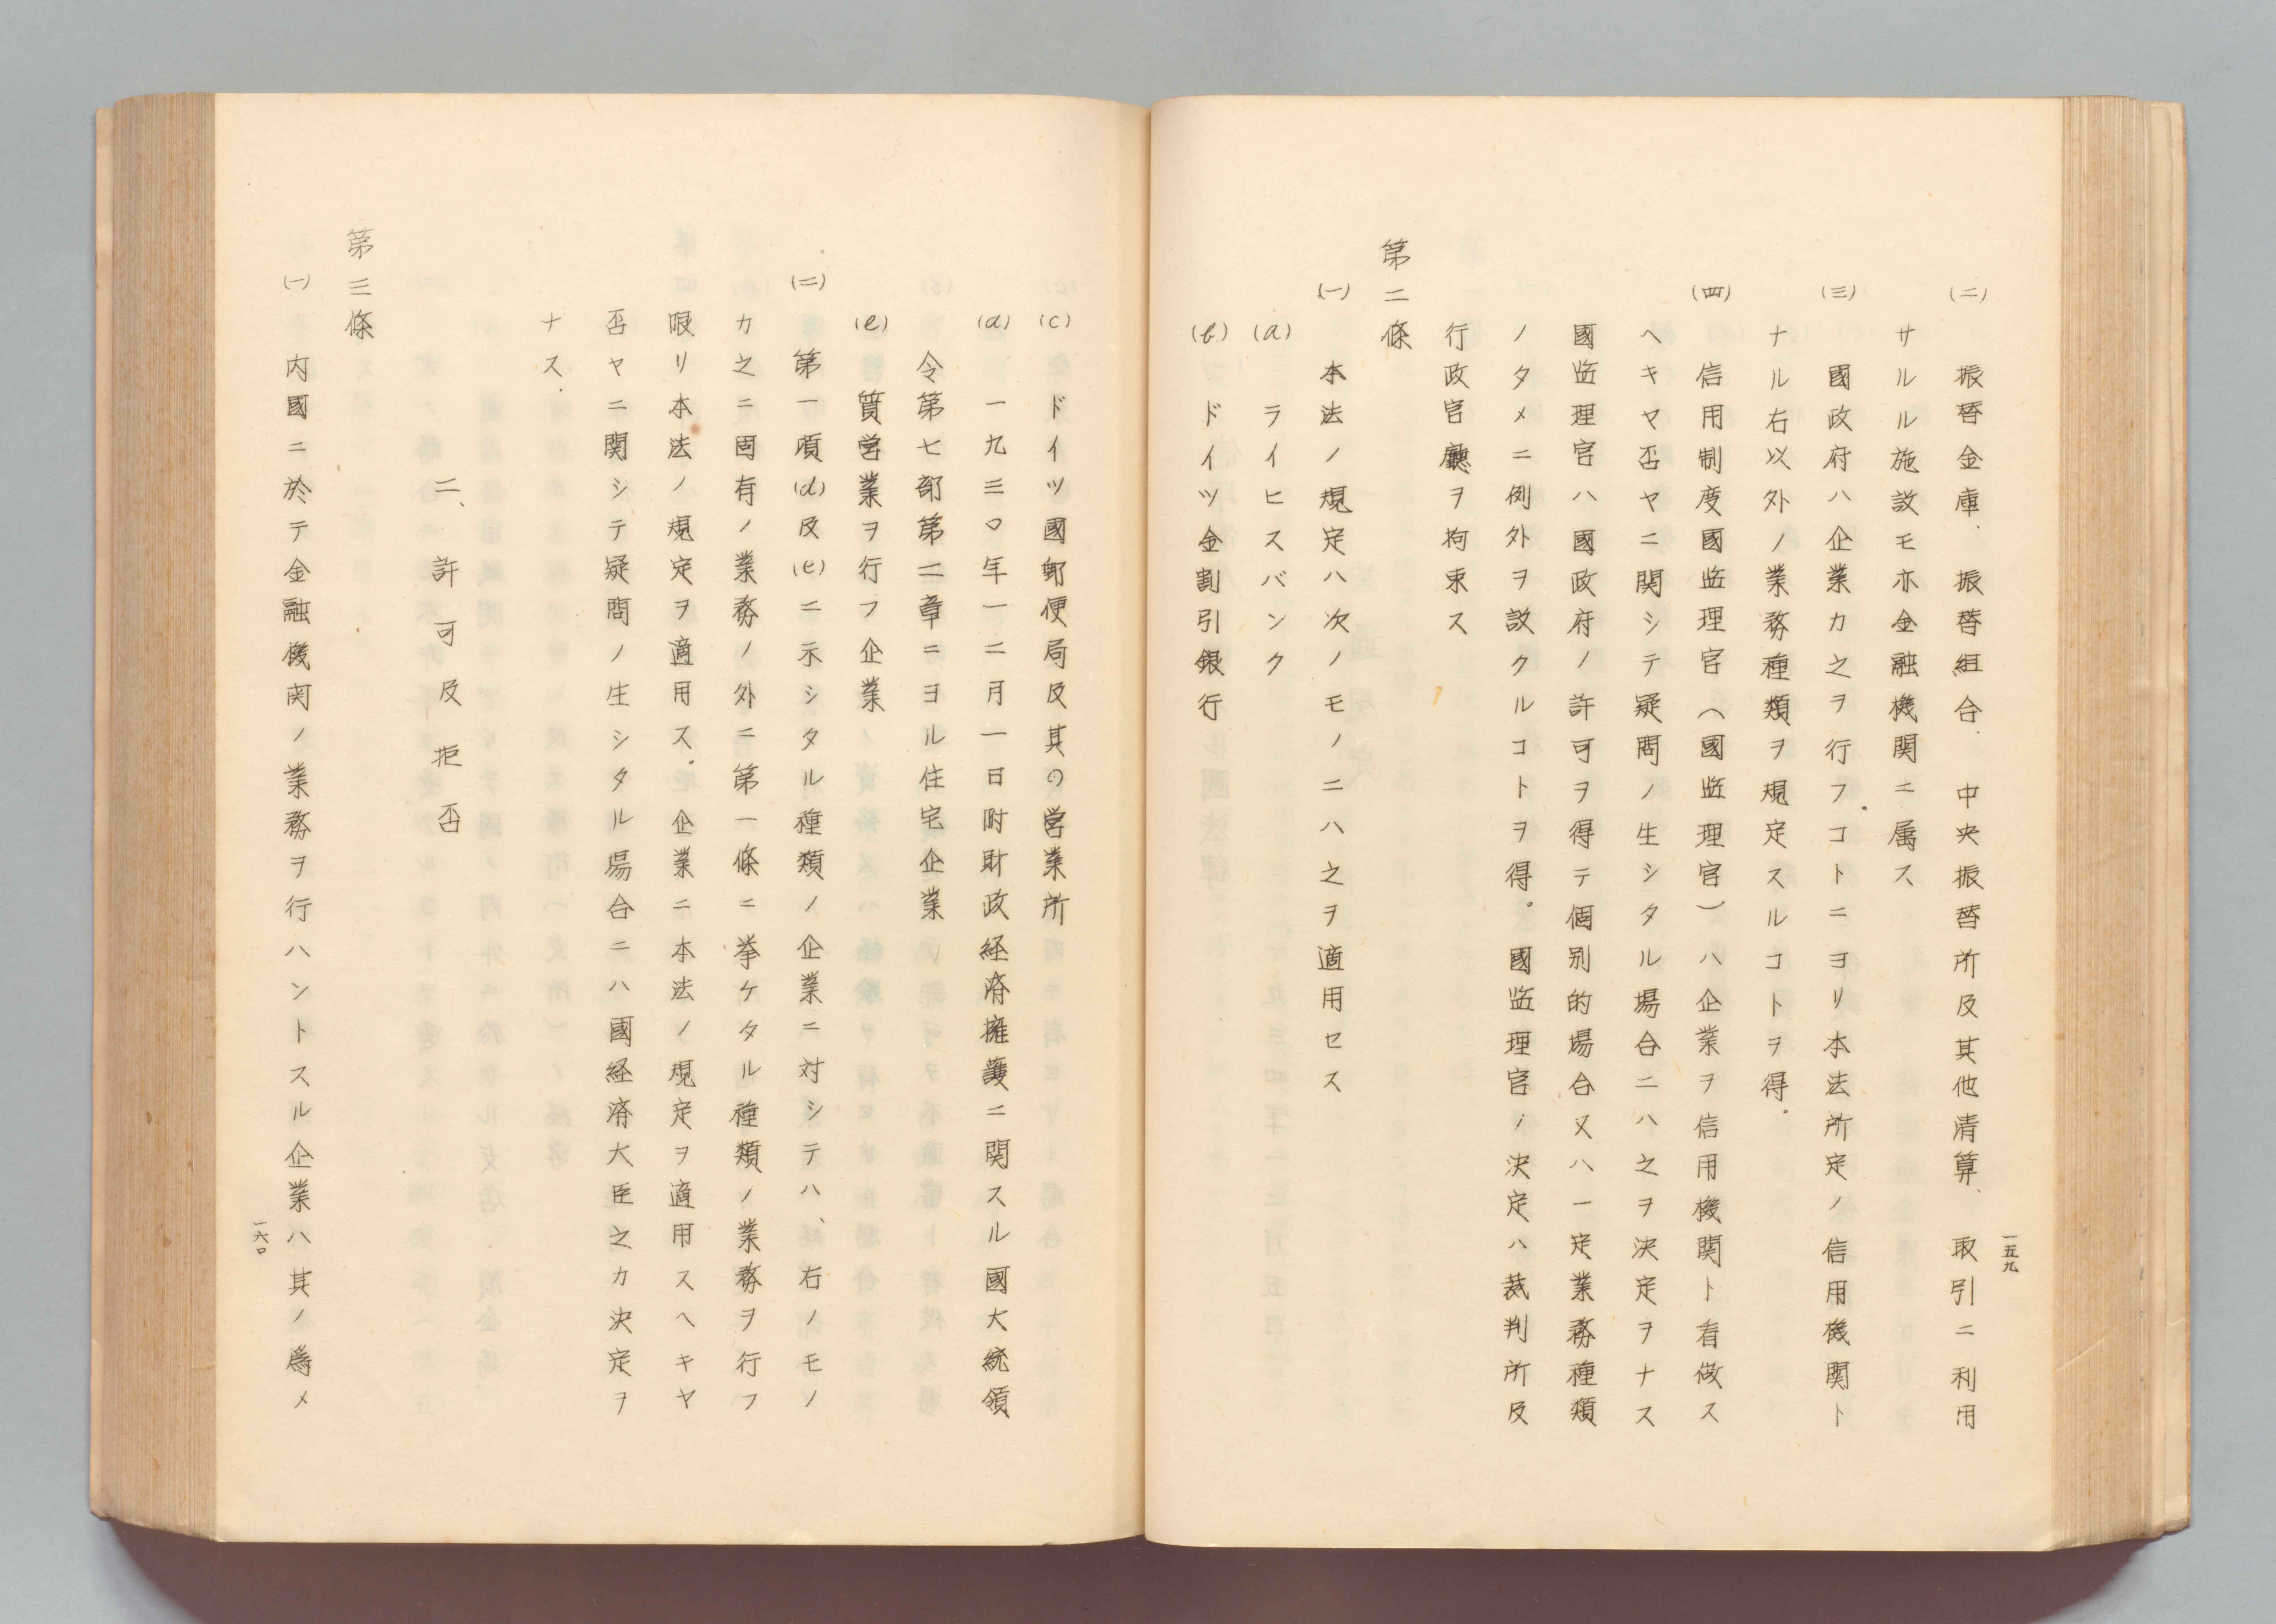 一五九
(二) 振替金庫、振替組合、中央振替所及其他清算、取引ニ利用
サルル施設モ亦金融機関ニ属ス
(三) 國政府ハ企業カ之ヲ行フコトニヨリ本法所定ノ信用機関ト
ナル右以外ノ業務種類ヲ規定スルコトヲ得.
(四) 信用制度國监理官(國监理官)ハ企業ヲ信用機関ト看做ス
ヘキヤ否ヤニ関シテ疑問ノ生シタル場合ニハ之ヲ決定ヲナス
國监理官ハ國政府ノ許可ヲ得テ個別的場合又ハ一定業務種類
ノタメニ例外ヲ設クルコトヲ得。國监理官ノ決定ハ裁判所及
行政官廳ヲ拘束ス
第二條
(一) 本法ノ規定ハ次ノモノニハ之ヲ適用セス
(a) ライヒスバンク
(b) ドイツ金割引銀行
(c) ドイツ國郵便局及其の営業所
(d) 一九三〇年一二月一日附財政経済擁護ニ関スル國大統領
令第七部第二章ニヨル住宅企業
(e) 質営業ヲ行フ企業
(二) 第一項(d)及(e)ニ示シタル種類ノ企業ニ対シテハ、右ノモノ
カ之ニ固有ノ業務ノ外ニ第一條ニ挙ケタル種類ノ業務ヲ行フ
限リ本法ノ規定ヲ適用ス。企業ニ本法ノ規定ヲ適用スヘキヤ
否ヤニ関シテ疑問ノ生シタル場合ニハ國経済大臣之カ決定ヲ
ナス.
二、許可及拒否
第三條
(一) 内國ニ於テ金融機関ノ業務ヲ行ハントスル企業ハ其ノ為メ
一六〇